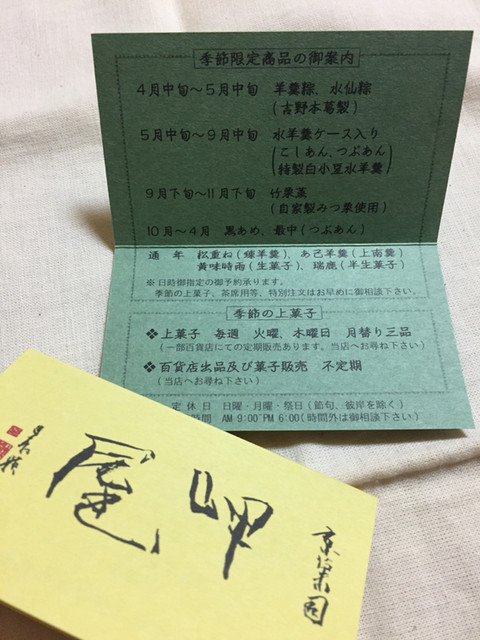 季節限定商品の御案内
4月中旬〜5月中旬 羊羹粽、水仙粽
(吉野本葛製)
5月中旬〜9月中旬 水羊羹ケース入り
(こしあん、つぶあん)
(特製白小豆水羊羹)
9月下旬〜11月下旬 竹栗蒸
(自家製みつ栗使用)
10月〜4月 黒あめ、最中(つぶあん)
通年 松重ね(練羊羹)、あこ羊羹(上南羹)
黄味時雨(生菓子)、瑞鹿(半生菓子)
※日時御指定の御予約承ります。
季節の上菓子、茶席用等、特別注文はお早めに御相談下さい。
季節の上菓子
❖上菓子 毎週 火曜、木曜日 月替り三品
(一部百貨店にての定期販売あります。当店へお尋ね下さい)
❖百貨店出品及び菓子販売 不定期
(当店へお尋ね下さい)
定休日 日曜・月曜・祭日(節句、彼岸を除く)
時間 AM-9:00~PM6:00(時間外は御相談下さい)
京菓司
岬